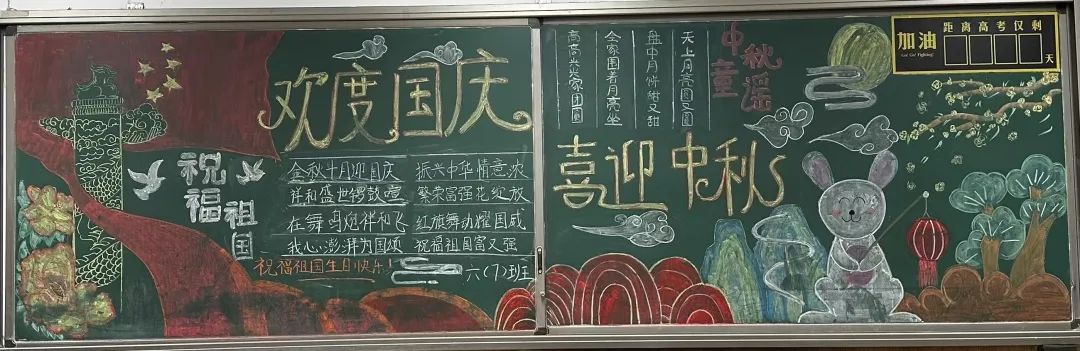 欢度国庆
祝福
祖国
金秋十月迎国庆 振兴中华情意浓
祥和盛世锣鼓喧 繁荣富强花绽放
在舞鸟炮伴和飞 红旗舞动耀国威
我心澎湃为国颂 祝福祖国富又强
祝福祖国生日快乐!
六(7)班
中秋
童谣
天上月亮圆又圆
盘中月饼甜又甜
全家围着月亮坐
高高兴兴家团圆
喜迎中秋
加油
Go! Go! Fighting!
距离高考仅剩
天